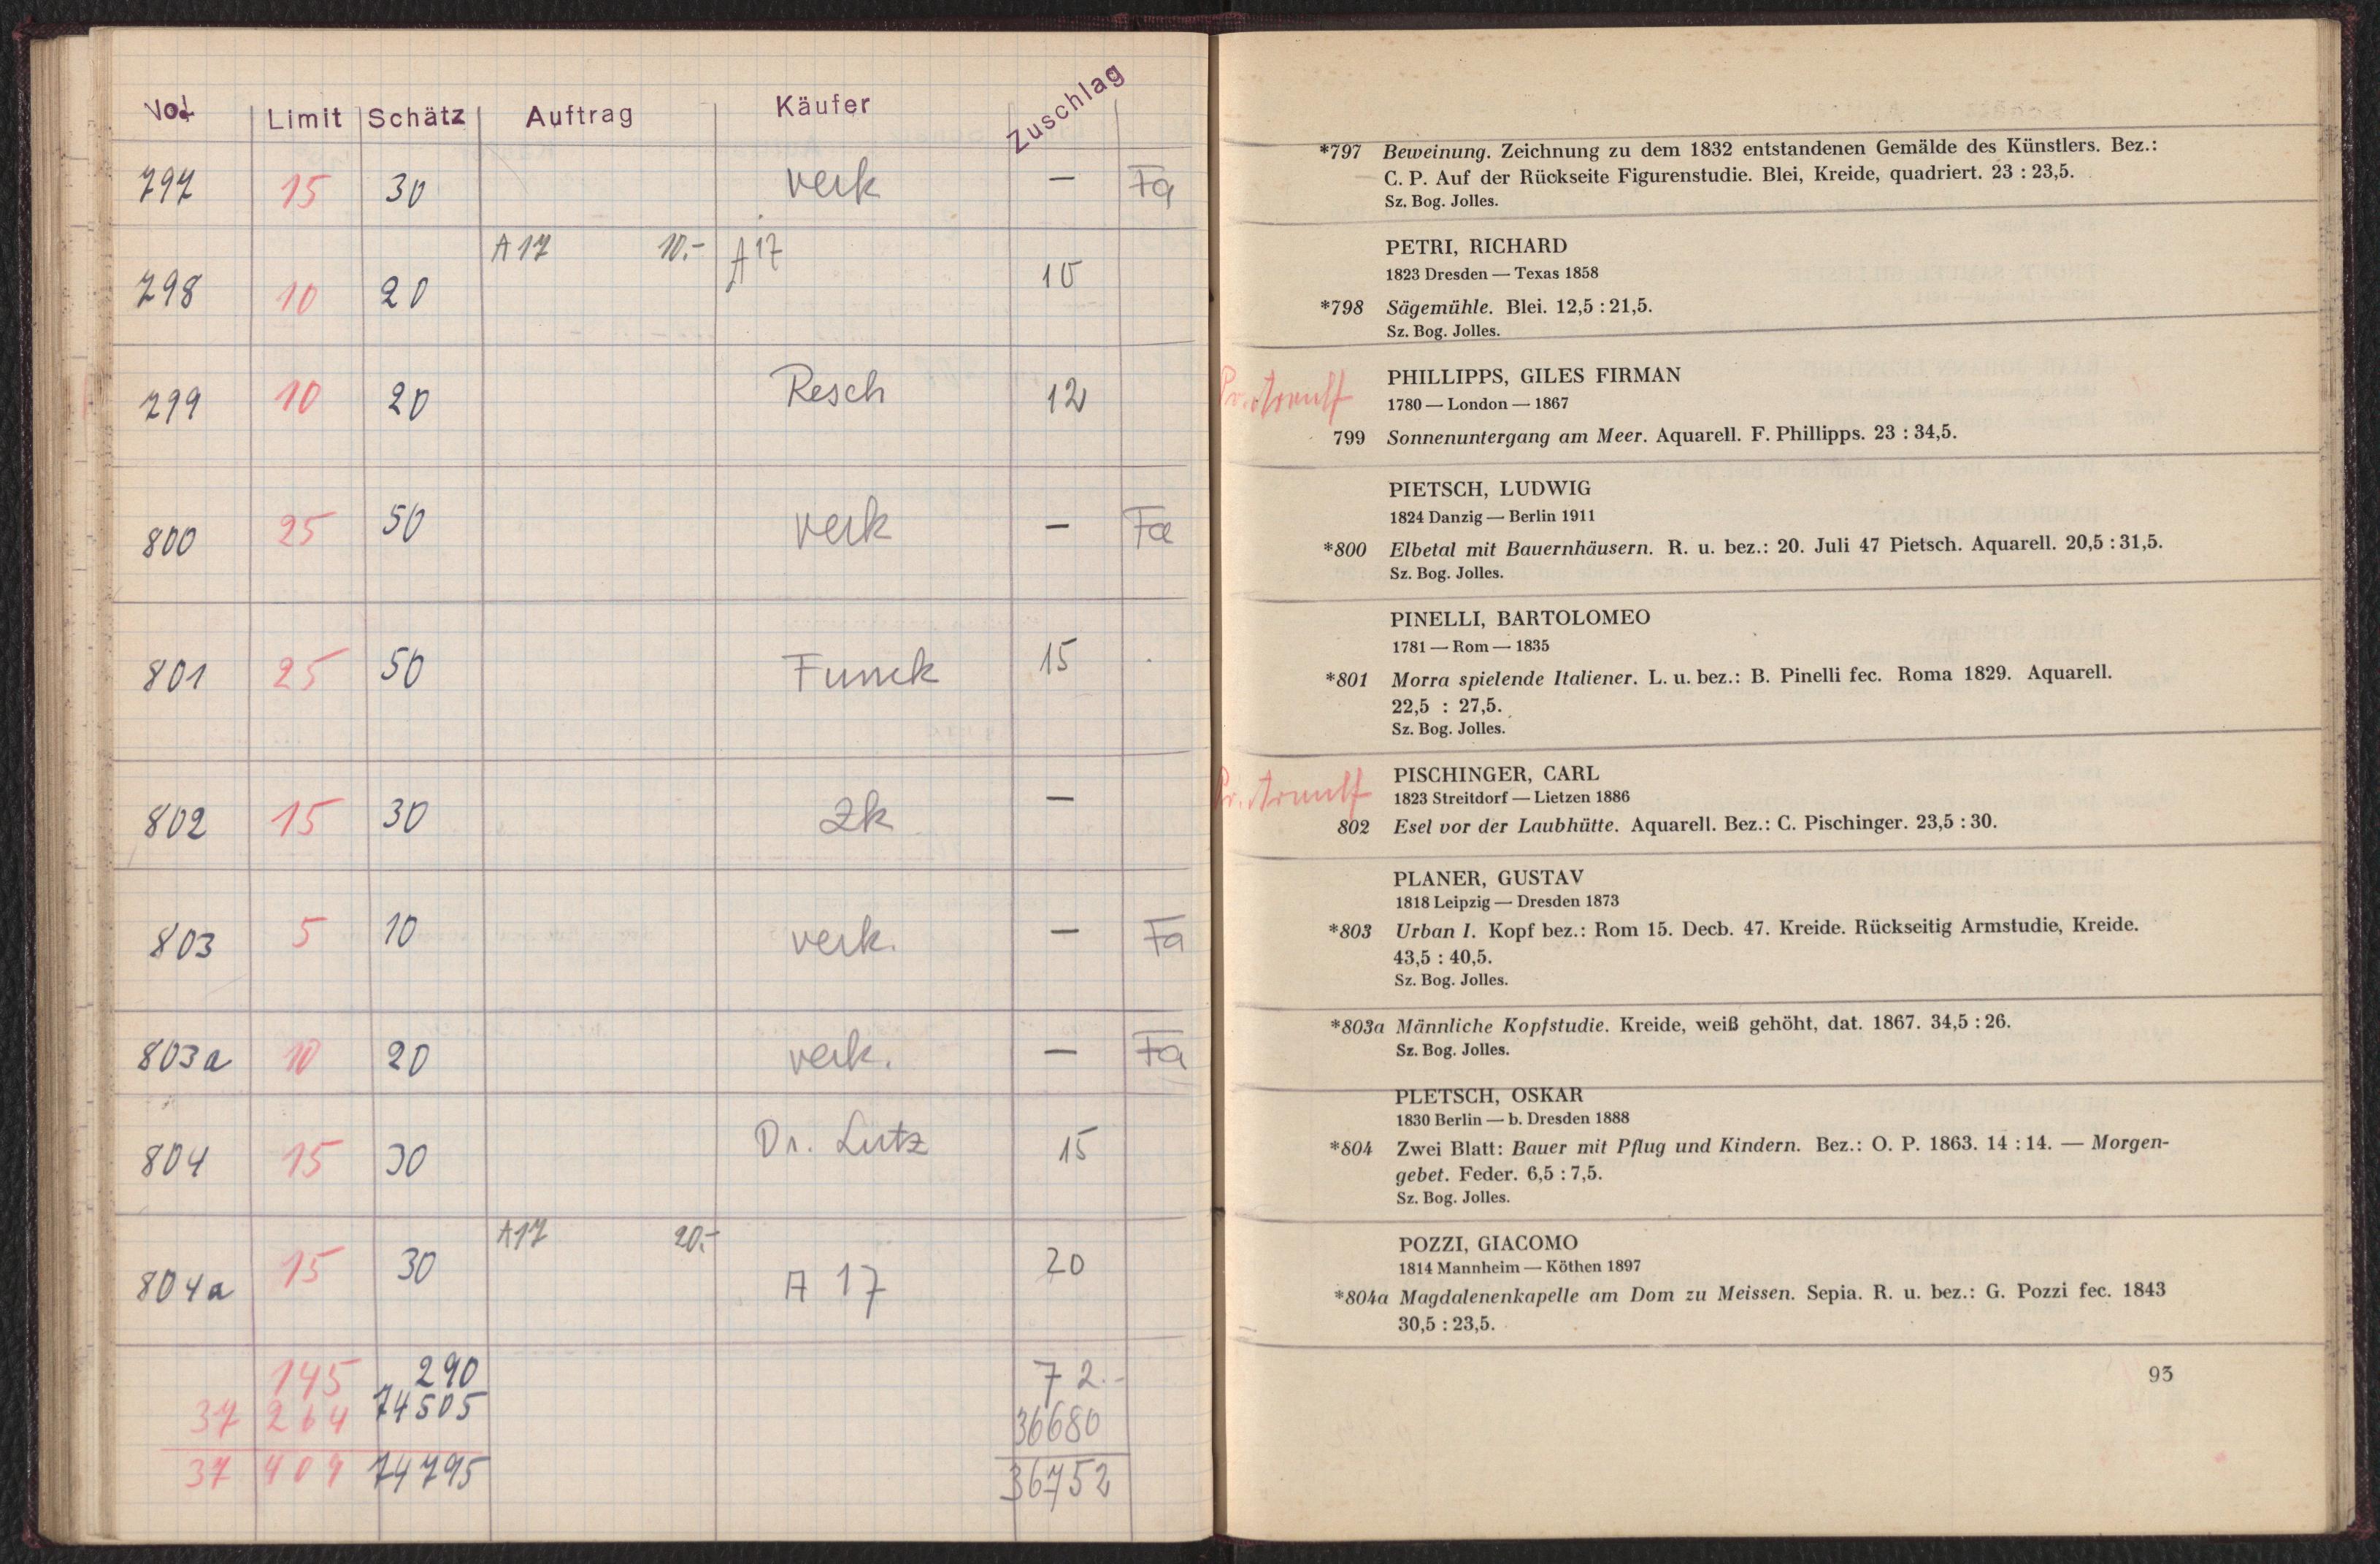 No. Limit Schätz Auftrag Käufer Zuschlag
797 15 30 verk – Fa
A17 10.- A17
798 10 20 10
799 10 20 Resch 12
800 25 50 verk – Fa
801 25 50 Funck 15
802 15 30 Zk –
803 5 10 verk. – Fa
803a 10 20 verk. – Fa
804 15 30 Dr. Lutz 15
A17 20.-
804a 15 30 A 17 20
145 290 72.-
37 264 74505 36680
37 409 74795 36752
*797 Beweinung. Zeichnung zu dem 1832 entstandenen Gemälde des Künstlers. Bez.:
C. P. Auf der Rückseite Figurenstudie. Blei, Kreide, quadriert. 23 : 23,5.
Sz. Bog. Jolles.
PETRI, RICHARD
1823 Dresden — Texas 1858
*798 Sägemühle. Blei. 12,5 : 21,5.
Sz. Bog. Jolles.
PHILLIPPS, GILES FIRMAN
1780 — London — 1867
799 Sonnenuntergang am Meer. Aquarell. F. Phillipps. 23 : 34,5.
PIETSCH, LUDWIG
1824 Danzig — Berlin 1911
*800 Elbetal mit Bauernhäusern. R. u. bez.: 20. Juli 47 Pietsch. Aquarell. 20,5 : 31,5.
Sz. Bog. Jolles.
PINELLI, BARTOLOMEO
1781 — Rom — 1835
*801 Morra spielende Italiener. L. u. bez.: B. Pinelli fec. Roma 1829. Aquarell.
22,5 : 27,5.
Sz. Bog. Jolles.
PISCHINGER, CARL
1823 Streitdorf — Lietzen 1886
802 Esel vor der Laubhütte. Aquarell. Bez.: C. Pischinger. 23,5 : 30.
PLANER, GUSTAV
1818 Leipzig — Dresden 1873
*803 Urban I. Kopf bez.: Rom 15. Decb. 47. Kreide. Rückseitig Armstudie, Kreide.
43,5 : 40,5.
Sz. Bog. Jolles.
*803a Männliche Kopfstudie. Kreide, weiß gehöht, dat. 1867. 34,5 : 26.
Sz. Bog. Jolles.
PLETSCH, OSKAR
1830 Berlin — b. Dresden 1888
*804 Zwei Blatt: Bauer mit Pflug und Kindern. Bez.: O. P. 1863. 14 : 14. — Morgen-
gebet. Feder. 6,5 : 7,5.
Sz. Bog. Jolles.
POZZI, GIACOMO
1814 Mannheim — Köthen 1897
*804a Magdalenenkapelle am Dom zu Meissen. Sepia. R. u. bez.: G. Pozzi fec. 1843
30,5 : 23,5.
95